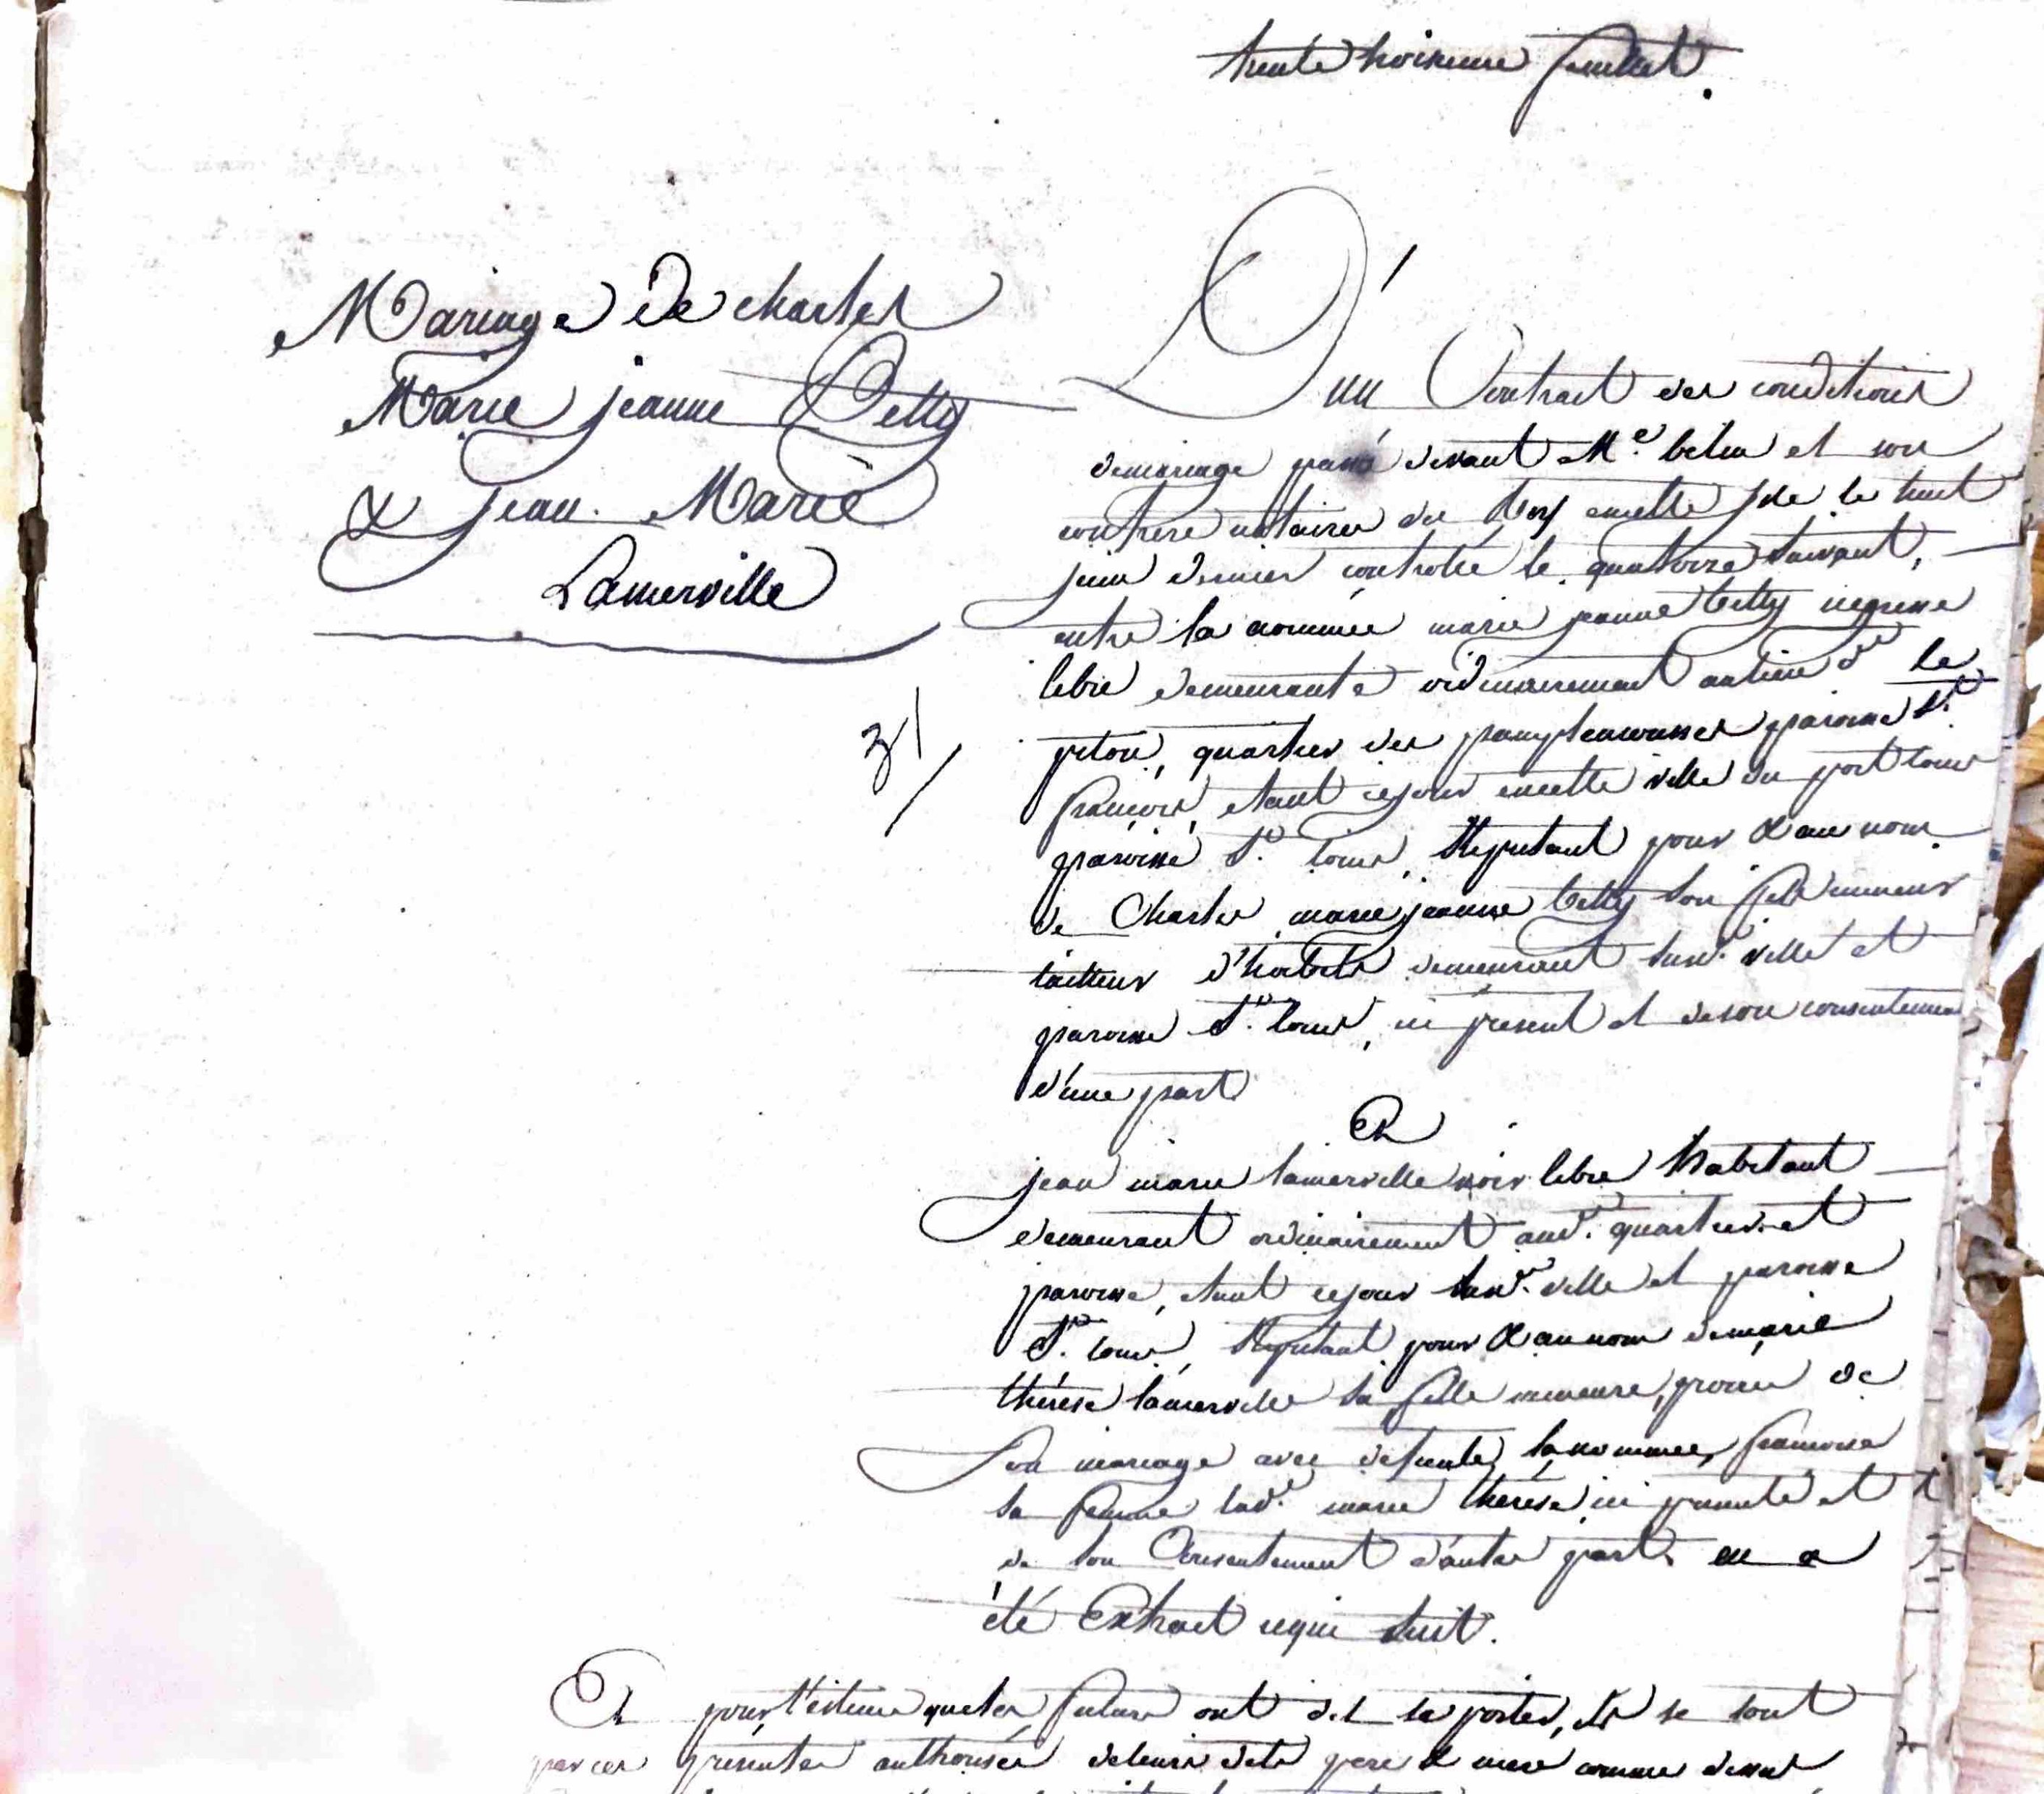 trente troisieme feuillet.
Mariage de charles
Marie jeanne Betty
& jean Marie
Lamerville
31
D'un Contract des conditions
demariage passé devant Me. belin et son
confrere notaires du Roy encette Isle le huit
juin dernier controllé le quatorze suivant,
entre la nommée marie jeanne betty negresse
libre demeurante ordinairement aulieu dit le
piton, quartier des pamplemousses paroisse St.
françois, etant cejour encette ville du port louis
paroisse St. louis, stipulant pour & au nom
de Charles marie jeanne betty son fils mineur
tailleur d'habits demeurant susd. ville et
paroisse St. louis, ici présent et deson consentement
d'une part
Et
jean marie lamerville noir libre habitant
demeurant ordinairement aud. quartier et
paroisse, etant cejour susde. ville et paroisse
St. louis, stipulant pour & au nom demarie
thérèse lamerville sa fille mineure, provenue de
son mariage avec defunte la nommée françoise
sa femme lade. marie thérèse ici presente et
de son Consentement d'autre part. en a
été Extrait cequi suit.
Et pour l'estime queles futurs ont dit se porter, ils se sont
par ces présentes authorisés deleurs dits pere & mere comme dessus